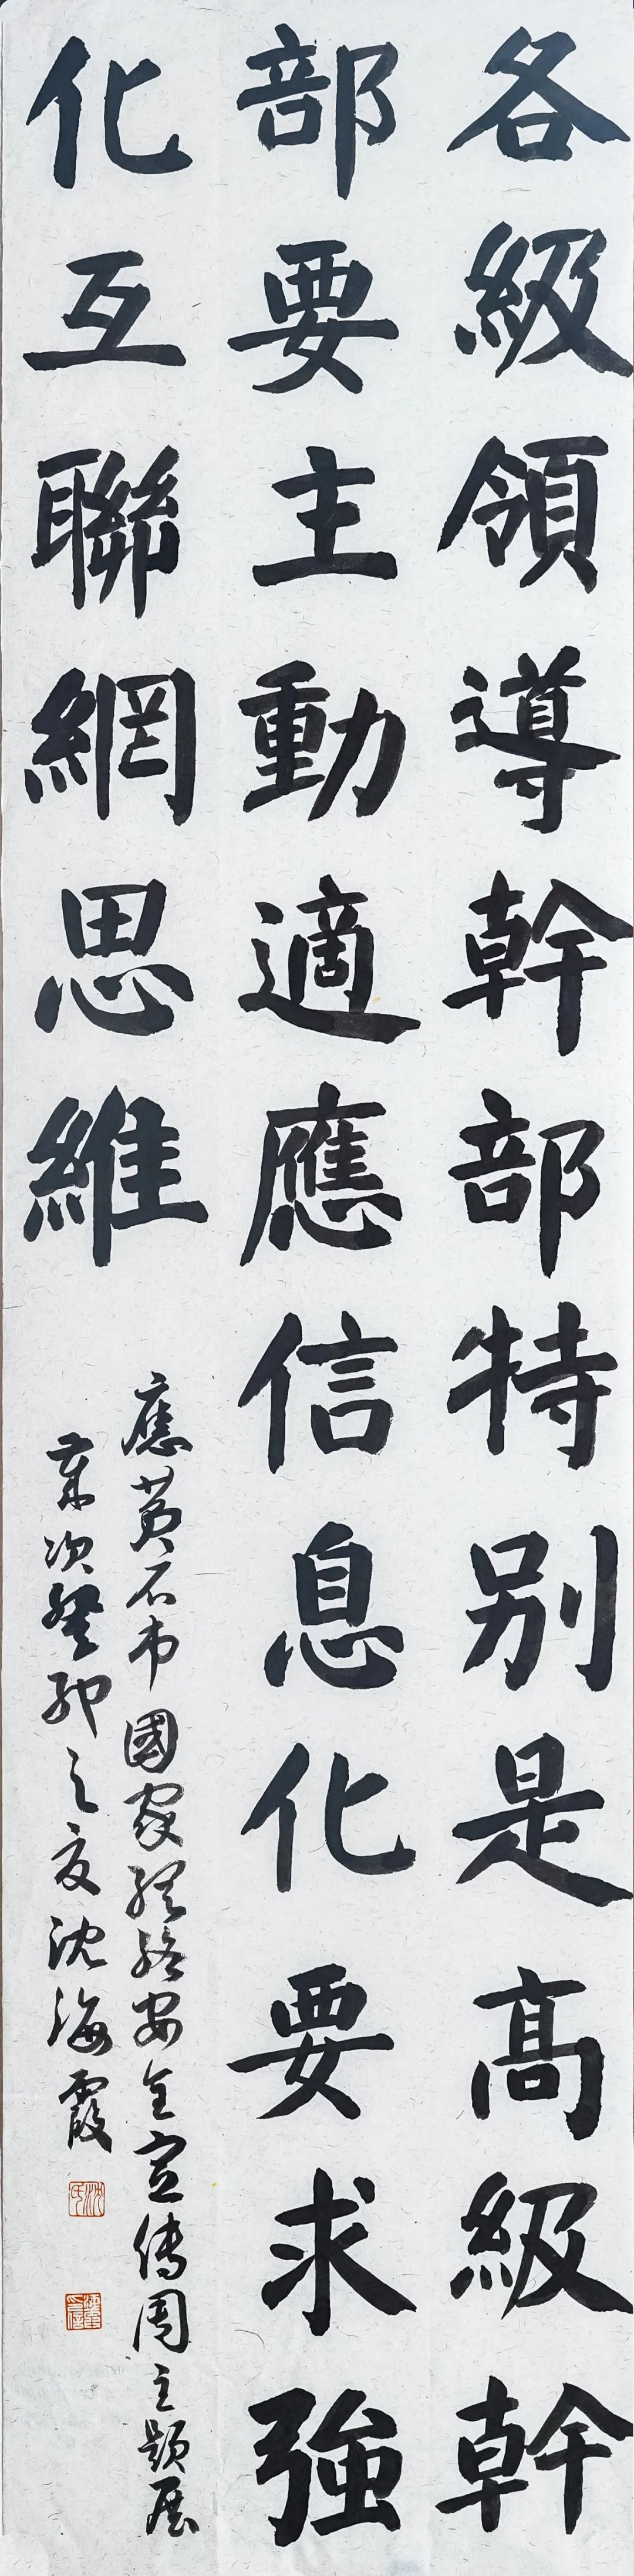 各級領導幹部特别是高級幹
部要主動適應信息化要求強
化互聯網思維
應黄石市國家網絡安全宣傳周主題展
歲次癸卯之夏沈海霞
沈氏